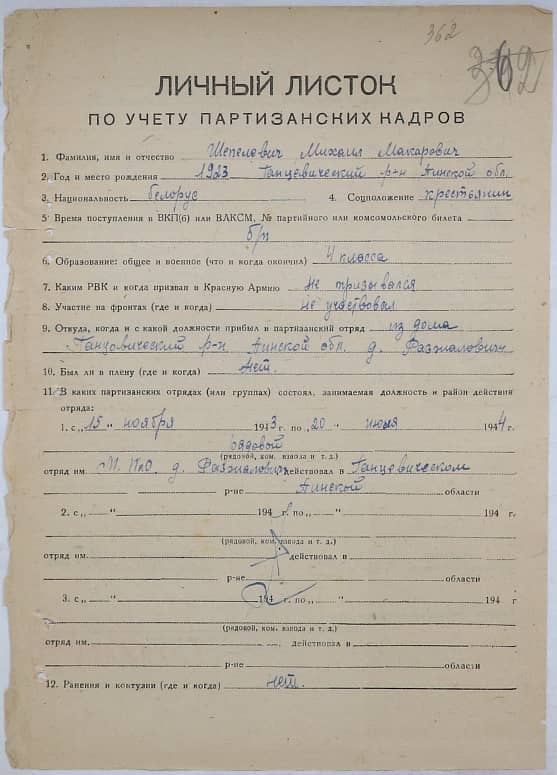 362
362
ЛИЧНЫЙ ЛИСТОК
ПО УЧЕТУ ПАРТИЗАНСКИХ КАДРОВ
1. Фамилия, имя и отчество Шепелевич Михаил Макарович
2. Год и место рождения 1923 Ганцевический р-н Пинской обл.
3. Национальность белорус 4. Соцположение крестьянин
5. Время поступления в ВКП(б) или ВЛКСМ, № партийного или комсомольского билета
б/п
6. Образование: общее и военное (что и когда окончил) 4 класса
7. Каким РВК и когда призван в Красную Армию Не призывался
8. Участие на фронтах (где и когда) не участвовал
9. Откуда, когда и с какой должности прибыл в партизанский отряд из дома
Ганцевический р-н Пинской обл. д. Разжалович
10. Был ли в плену (где и когда) Нет.
11. В каких партизанских отрядах (или группах) состоял, занимаемая должность и район действия
отряда:
1. с „15" ноября 1943 г. по „20" июля 1944 г.
рядовой
(рядовой, ком. взвода и т. д.)
отряд им. д. Разжалович действовал в Ганцевическом
р-не Пинской области
2. с „ " 194 г. по „ " 194 г.
(рядовой, ком. взвода и т. д.)
отряд им. действовал в
р-не области
3. с „ " 194 г. по „ " 194 г
(рядовой, ком. взвода и т. д.)
отряд им. действовал в
р-не области
12. Ранения и контузии (где и когда) нет.